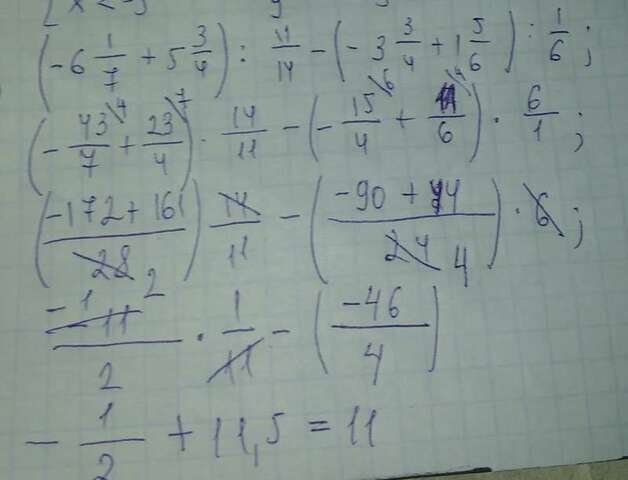 (-6 1/7 + 5 3/4) : 11/14 - (-3 3/4 + 1 5/6) : 1/6 ;
(-43/7 + 23/4) · 14/11 - (-15/4 + 11/6) · 6/1 ;
((-172 + 161)/28) 14/11 - ((-90 + 44)/24) · 6 ;
-11/2 · 1/11 - (-46/4)
-1/2 + 11,5 = 11